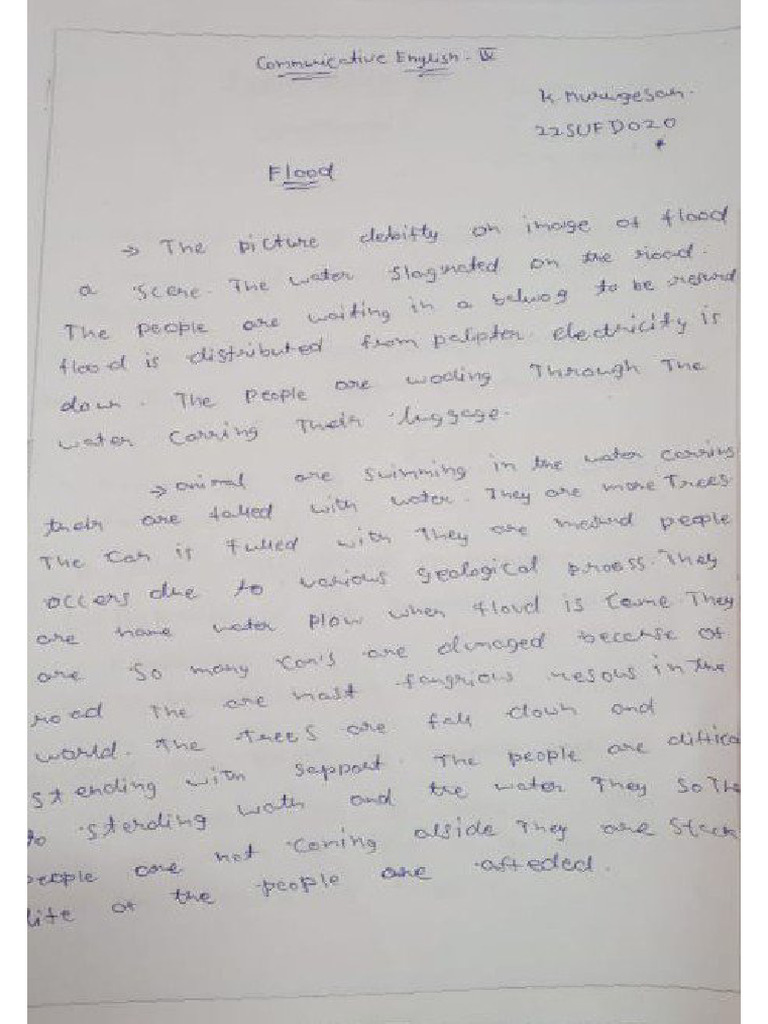 Communicative English - IV
K. Murugesan.
22SUFD020
Flood
→ The picture debifty on image of flood
a scene. The water slagnated on the road.
The people are waiting in a to be
flood is distributed from palipter. electricity is
down. The people are wading Through The
water Carring Their luggage.
→ animal are swimming in the water carring
their are falled with water. They are more Trees
The Car is fulled with They are people
occers due to various geological proess. They
are home water plow when floud is Come. They
are so many Car's are dumaged because of
road The are mast in the
world. The trees are fall down and
stending with sapport. The people are diffica
to sterding wath and the water They so Th
people are not coming alside They are Stack
life of the people are affeded.